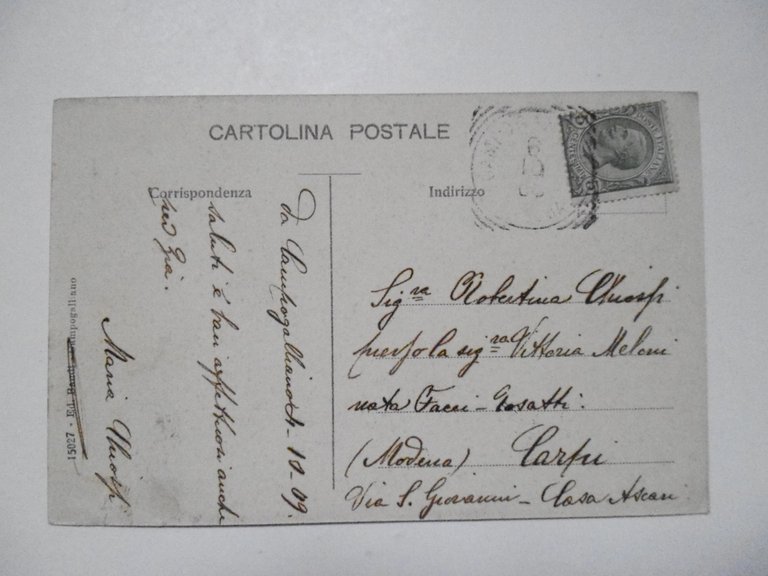 CARTOLINA POSTALE
Corrispondenza
Indirizzo
POSTE ITALIANE
da Campogalliano 4-10-09.
saluti e baci affettuosi anche
Zia.
Maria
15027 - Ed. Campogalliano
Sig.ra Robertina
presso la sig.ra Vittoria Meloni
nata Facci - Gosatti.
(Modena) Carpi
Via S. Giovanni - Casa Ascari